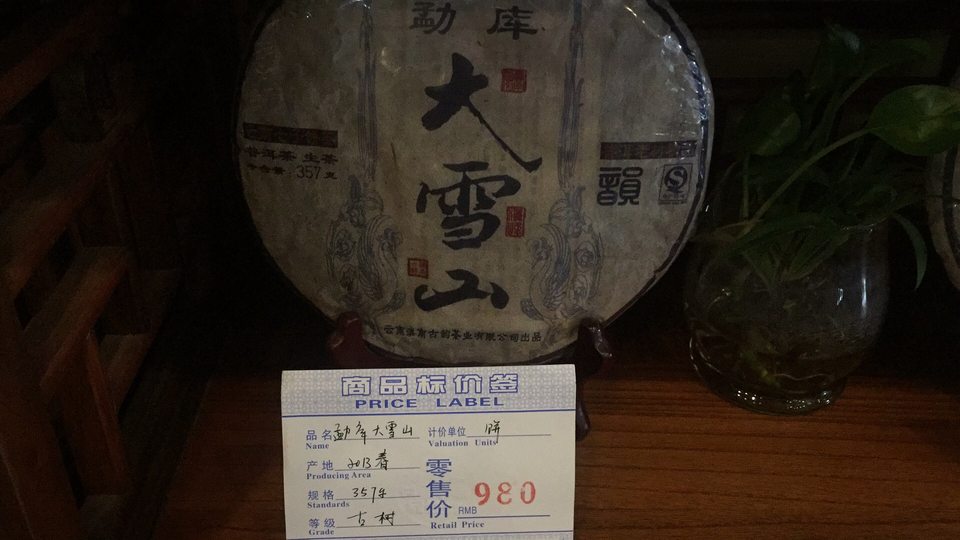 勐库
大
雪
山
普洱茶 生茶
净含量:357克
韻
云南滇南古韵茶业有限公司出品
商品标价签
PRICE LABEL
品名 勐库大雪山 计价单位 饼
Name Valuation Units
产地 2013春
Producing Area
规格 357克
Standards
零售价 RMB 980
等级 古树
Grade Retail Price